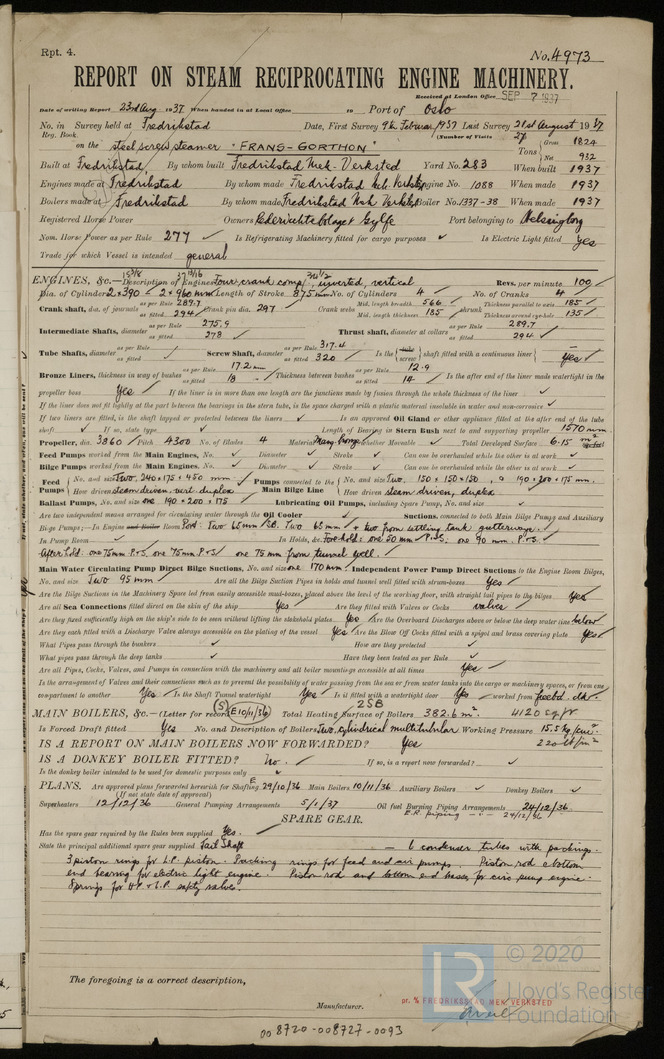 Rpt. 4.
No. 4973
REPORT ON STEAM RECIPROCATING ENGINE MACHINERY.
Received at London Office SEP 7 1937
Date of writing Report 23rd Aug 1937 When handed in at Local Office 19 Port of Oslo
No. in Survey held at Fredrikstad Date, First Survey 9th Februar 1937 Last Survey 21st August 1937
Reg. Book. (Number of Visits 27
on the steel screw steamer "FRANS-GORTHON" Tons Gross 1824
Net 932
Built at Fredrikstad By whom built Fredrikstad Mek. Verksted Yard No. 283 When built 1937
Engines made at Fredrikstad By whom made Fredrikstad Mek. Verksted Engine No. 1088 When made 1937
Boilers made at Fredrikstad By whom made Fredrikstad Mek Verksted Boiler No. 1337-38 When made 1937
Registered Horse Power Owners Rederiaktiebolaget Gylfe Port belonging to Helsingborg
Nom. Horse Power as per Rule 277 Is Refrigerating Machinery fitted for cargo purposes Is Electric Light fitted Yes
Trade for which Vessel is intended general
ENGINES, &c.—Description of Engines Four crank comp, inverted, vertical Revs. per minute 100
Dia. of Cylinders 2×390 - 2×960 mm Length of Stroke 875 mm No. of Cylinders 4 No. of Cranks 4
Crank shaft, dia. of journals as per Rule 289.7 as fitted 294 Crank pin dia. 297 Crank webs Mid. length breadth 566 Mid. length thickness 185 shrunk Thickness parallel to axis 185 Thickness around eye-hole 135
Intermediate Shafts, diameter as per Rule 275.9 as fitted 278 Thrust shaft, diameter at collars as per Rule 289.7 as fitted 294
Tube Shafts, diameter as per Rule as fitted Screw Shaft, diameter as per Rule 317.4 as fitted 320 Is the tube screw shaft fitted with a continuous liner Yes
Bronze Liners, thickness in way of bushes as per Rule 17.2 mm as fitted 18 Thickness between bushes as per Rule 12.9 as fitted 14 Is the after end of the liner made watertight in the
propeller boss Yes If the liner is in more than one length are the junctions made by fusion through the whole thickness of the liner
If the liner does not fit tightly at the part between the bearings in the stern tube, is the space charged with a plastic material insoluble in water and non-corrosive
If two liners are fitted, is the shaft lapped or protected between the liners Is an approved Oil Gland or other appliance fitted at the after end of the tube
shaft If so, state type Length of Bearing in Stern Bush next to and supporting propeller 1570 mm
Propeller, dia. 3860 Pitch 4300 No. of Blades 4 Material Mang. Bronze whether Moveable Total Developed Surface 6.15 m²
Feed Pumps worked from the Main Engines, No. Diameter Stroke Can one be overhauled while the other is at work
Bilge Pumps worked from the Main Engines, No. Diameter Stroke Can one be overhauled while the other is at work
Feed Pumps No. and size Two, 240×175×450 mm Pumps connected to the No. and size Two, 150×150×150, a 190×200×175 mm.
How driven steam driven, vert. duplex Main Bilge Line How driven steam driven, duplex
Ballast Pumps, No. and size one 190×200×175 Lubricating Oil Pumps, including Spare Pump, No. and size
Are two independent means arranged for circulating water through the Oil Cooler Suctions, connected to both Main Bilge Pumps and Auxiliary
Bilge Pumps;—In Engine and Boiler Room Port: Two 65 mm / SB. Two 65 mm + two from settling tank gutterways.
In Pump Room In Holds, &c. Forhold: one 50 mm P.S., one 90 mm P.S.
Afterhold: one 75 mm P.S, one 75 mm P.S / one 75 mm from tunnel well.
Main Water Circulating Pump Direct Bilge Suctions, No. and size one 170 mm Independent Power Pump Direct Suctions to the Engine Room Bilges,
No. and size Two 95 mm Are all the Bilge Suction Pipes in holds and tunnel well fitted with strum-boxes Yes
Are the Bilge Suctions in the Machinery Space led from easily accessible mud-boxes, placed above the level of the working floor, with straight tail pipes to the bilges Yes
Are all Sea Connections fitted direct on the skin of the ship Yes Are they fitted with Valves or Cocks valves
Are they fixed sufficiently high on the ship's side to be seen without lifting the stokehold plates Yes Are the Overboard Discharges above or below the deep water line below
Are they each fitted with a Discharge Valve always accessible on the plating of the vessel Yes Are the Blow Off Cocks fitted with a spigot and brass covering plate Yes
What Pipes pass through the bunkers How are they protected
What pipes pass through the deep tanks Have they been tested as per Rule
Are all Pipes, Cocks, Valves, and Pumps in connection with the machinery and all boiler mountings accessible at all times Yes
Is the arrangement of Valves and their connections such as to prevent the possibility of water passing from the sea or from water tanks into the cargo or machinery spaces, or from one
compartment to another Yes Is the Shaft Tunnel watertight Yes Is it fitted with a watertight door Yes worked from freeb. dk.
MAIN BOILERS, &c.—(Letter for record (S) E 10/11/36) Total Heating Surface of Boilers 2SB 382.6 m² 4120 sq ft
Is Forced Draft fitted Yes No. and Description of Boilers Two cylindrical multitubular Working Pressure 15.5 kg/cm²
IS A REPORT ON MAIN BOILERS NOW FORWARDED? Yes 220 lb/in²
IS A DONKEY BOILER FITTED? No. If so, is a report now forwarded?
Is the donkey boiler intended to be used for domestic purposes only
PLANS. Are approved plans forwarded herewith for Shafting E 29/10/36 Main Boilers 10/11/36 Auxiliary Boilers Donkey Boilers
(If not state date of approval)
Superheaters 12/12/36 General Pumping Arrangements 5/1/37 Oil fuel Burning Piping Arrangements 24/12/36
E.R. piping -:- 24/12/36
SPARE GEAR.
Has the spare gear required by the Rules been supplied Yes.
State the principal additional spare gear supplied Tail Shaft — 6 condenser tubes with packings.
3 piston rings for L.P. piston. Packing rings for feed and air pumps. Piston rod & bottom
end bearing for electric light engine. Piston rod and bottom end brasses for circ. pump engine.
Springs for H.P. & L.P. safety valves.
The foregoing is a correct description,
Manufacturer.
pr. % FREDRIKSSTAD MEK. VERKSTED
© 2020
LR Lloyd's Register
Foundation
008720-008727-0093